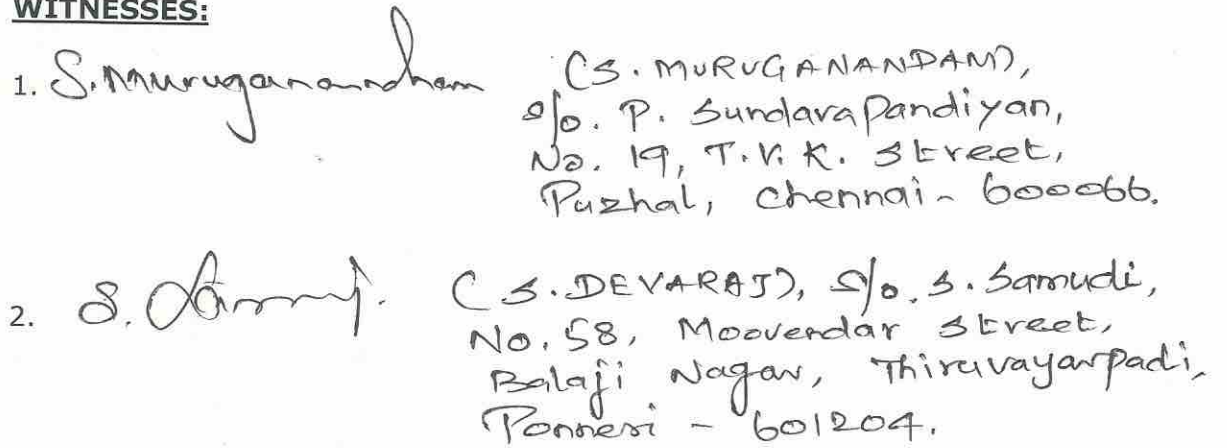 WITNESSES:
1. S. Muruganandham (S. MURUGANANDAM),
S/o. P. Sundarapandiyan,
No. 19, T.V.K. Street,
Puzhal, Chennai - 600066.
2. S. (S. DEVARAJ), S/o. S. Samudi,
No. 58, Moovendar Street,
Balaji Nagar, Thiruvayarpadi,
Ponneri - 601204.